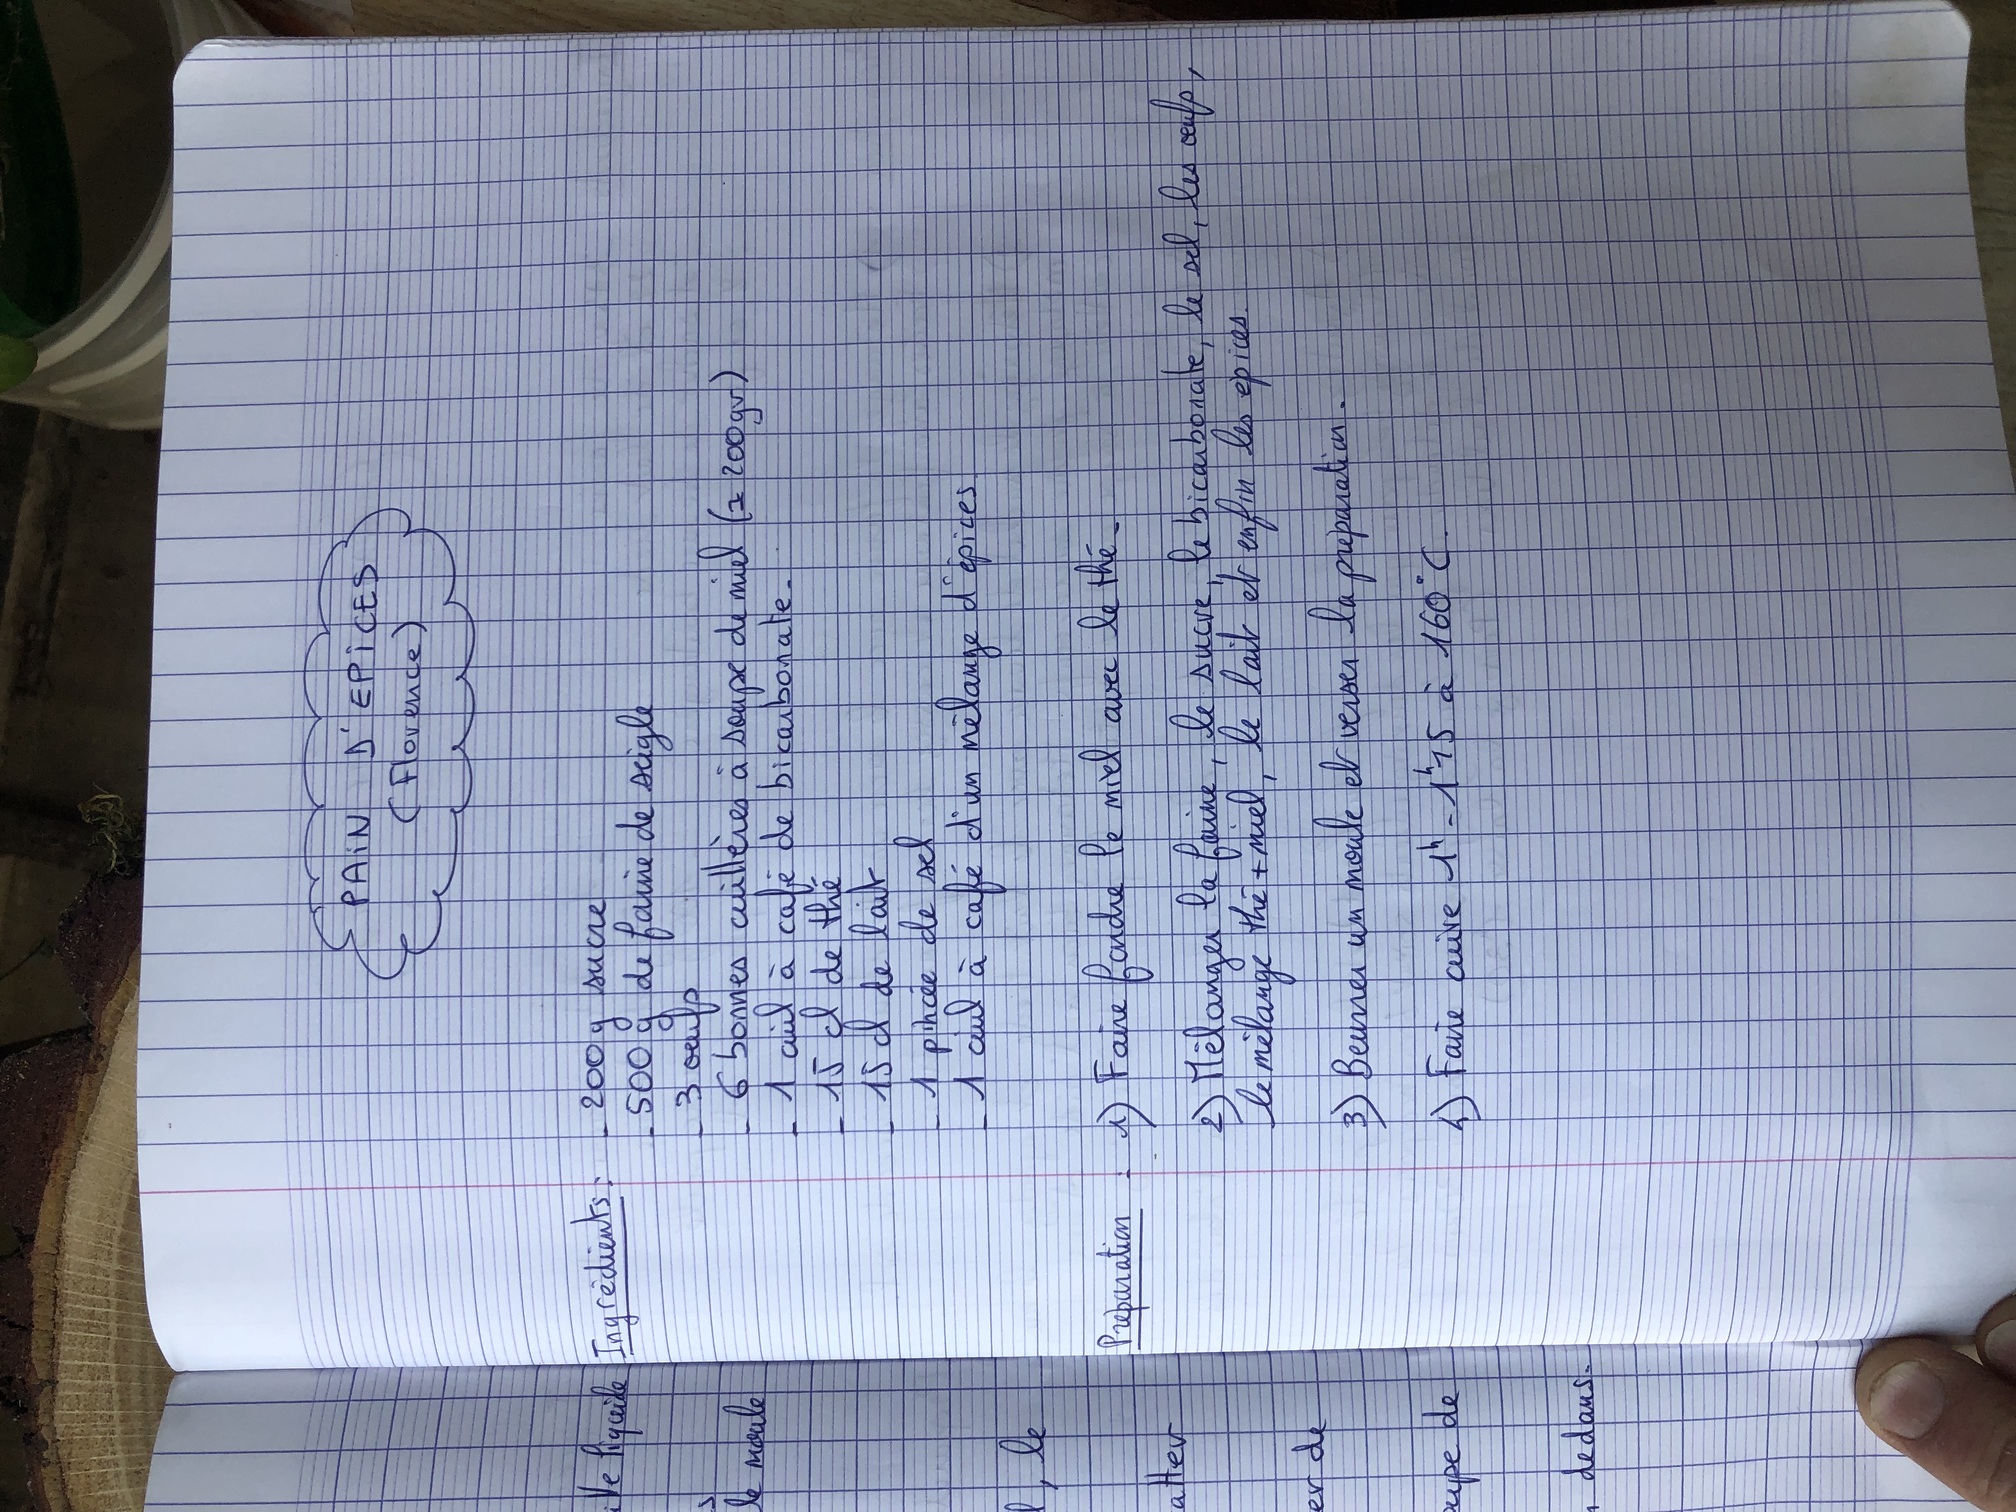 PAIN D'EPICES
(Florence)
Ingrédients: - 200 g sucre
- 500 g de farine de seigle
- 3 oeufs
- 6 bonnes cuillères à soupe de miel (± 200gr)
- 1 cuil à café de bicarbonate.
- 15 cl de thé
- 15 cl de lait
- 1 pincée de sel
- 1 cuil à café d'un mélange d'épices.
Préparation : 1) Faire fondre le miel avec le thé.
2) Mélanger la farine, le sucre, le bicarbonate, le sel, les oeufs,
le mélange thé + miel, le lait et enfin les épices.
3) Beurrer un moule et verser la préparation.
4) Faire cuire 1h - 1h15 à 160°C.
liquide
le moule
, le
de
de
dedans.